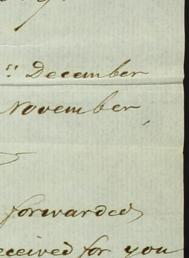 December
November,
forwarded
received for you